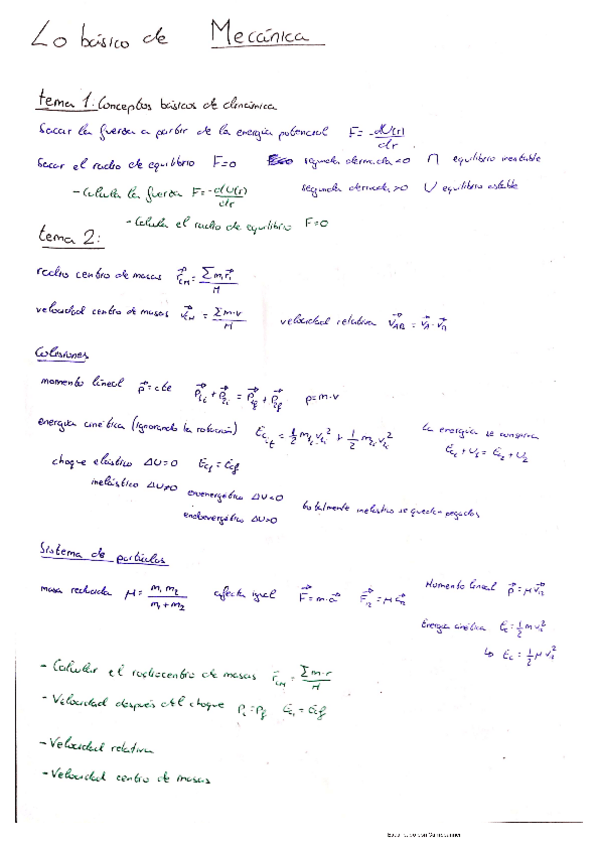 Lo básico de Mecánica
tema 1: Conceptos básicos de dinámica
Sacar la fuerza a partir de la energía potencial F = -dU(r)/dr
Sacar el radio de equilibrio F=0 segunda derivada <0 ∩ equilibrio inestable
- Calcular la fuerza F = -dU(r)/dr segunda derivada >0 ∪ equilibrio estable
- Calcular el radio de equilibrio F=0
tema 2:
radio centro de masas r⃗CM = Σ mᵢr⃗ᵢ / M
velocidad centro de masas v⃗CM = Σ m·v / M velocidad relativa v⃗AB = v⃗A - v⃗B
Colisiones
momento lineal p⃗ = cte p⃗1i + p⃗2i = p⃗1f + p⃗2f p = m·v
energía cinética (ignorando la rotación) Ec = 1/2 m1i v1i² + 1/2 m2i v2i² La energía se conserva
choque elástico ΔU=0 Eci = Ecf Ec1 + U1 = Ec2 + U2
inelástico ΔU≠0 exoenergético ΔU<0 totalmente inelástico se quedan pegados
endoenergético ΔU>0
Sistema de partículas
masa reducida μ = m1 m2 / m1 + m2 afecta igual F⃗ = m·a⃗ F⃗12 = μ a⃗12 Momento lineal p⃗ = μ v⃗12
Energía cinética Ec = 1/2 m v²
↳ Ec = 1/2 μ v²
- Calcular el radio centro de masas r⃗CM = Σ m·r / M
- Velocidad después del choque Pi = Pf Eci = Ecf
- Velocidad relativa
- Velocidad centro de masas